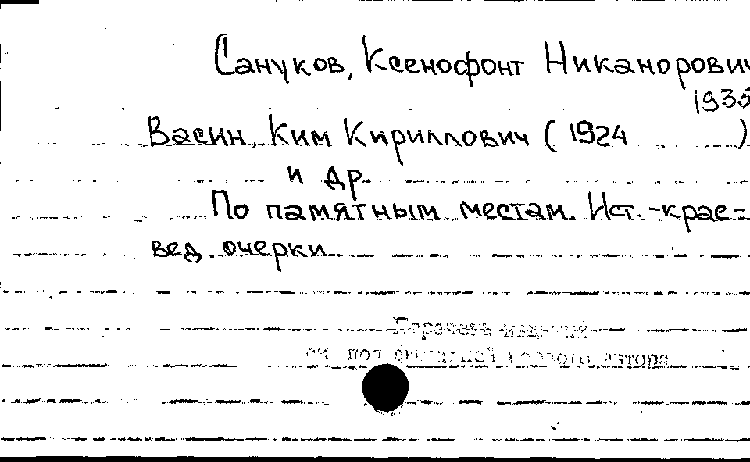 Сануков, Ксенофонт Никанорович
1935
Васин, Ким Кириллович (1924 )
и др.
По памятным местам. Ист.-крае=
вед. очерки
Перечень изданий
см. под фамилией автора